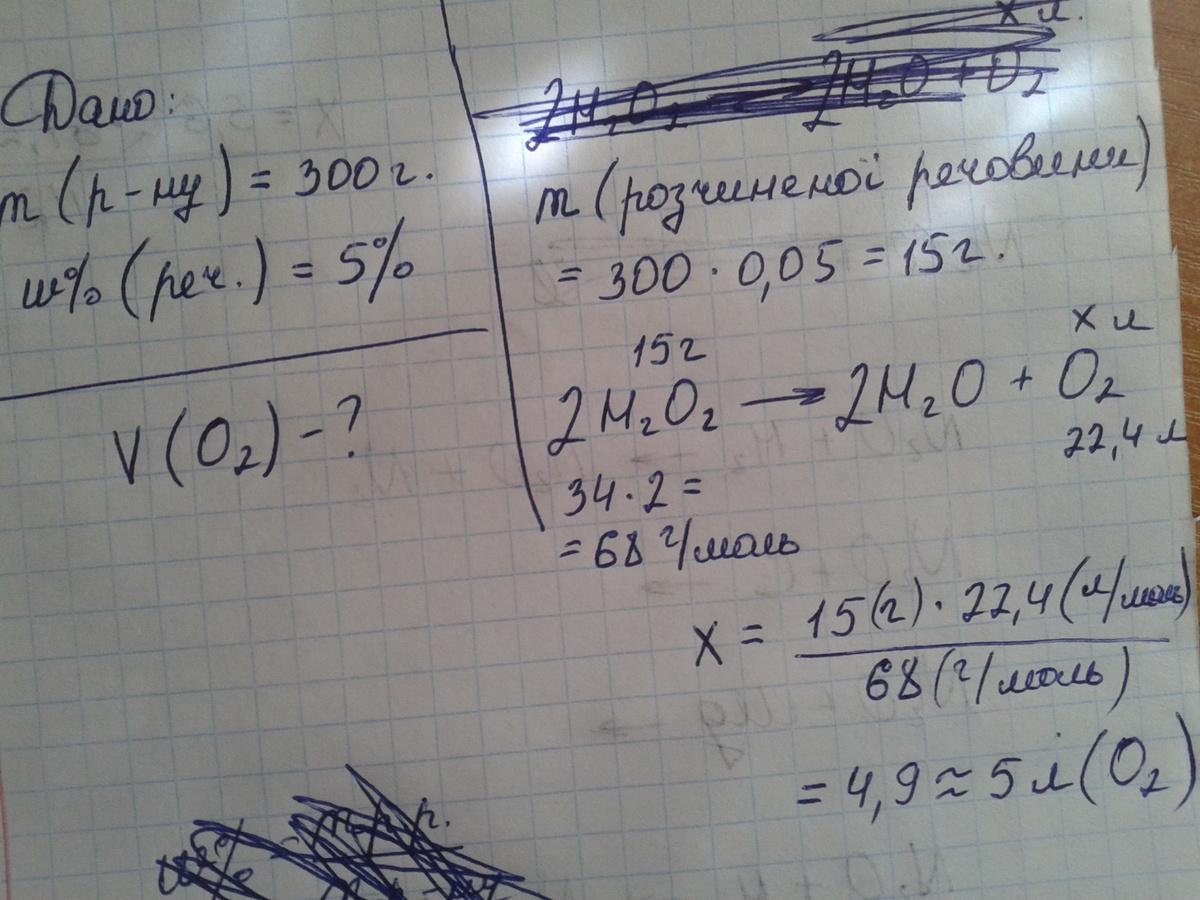 Дано:
m (р-ну) = 300 г.
w% (реч.) = 5%
V (O₂) - ?
x л.
2H₂O₂ → 2H₂O + O₂
m (розчиненої речовини)
= 300 · 0,05 = 15 г.
15 г x л
2H₂O₂ → 2H₂O + O₂
22,4 л
34 · 2 =
= 68 г/моль
x = 15 (г) · 22,4 (л/моль)
68 (г/моль)
= 4,9 ≈ 5 л (O₂)